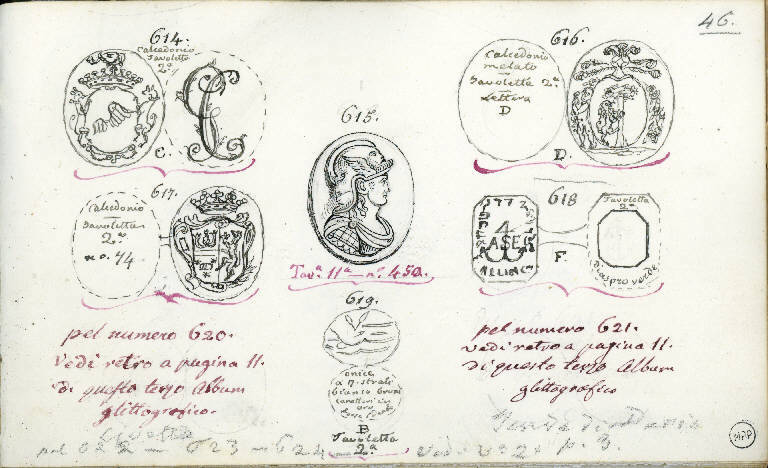 46.
614.
Calcedonio
Tavoletta
2ª
C.
615.
Tavª. 11ª nº. 450.
616.
Calcedonio
melato
Tavoletta 2ª
Lettera
D
D.
617.
Calcedonio
Tavoletta
2ª
nº. 74
618
1772
4
ASE
F.
Tavoletta
2ª
Diaspro verde
619.
onice
a 7. strati
bianco bruni
caratteri in
oro
B
Tavoletta
2ª
pel numero 620.
Vedi retro a pagina 11.
di questo terzo Album
glittografico.
pel numero 621.
Vedi retro a pagina 11.
di questo terzo Album
glittografico
pel 622 - 623 - 624 - Vedi p. 3.